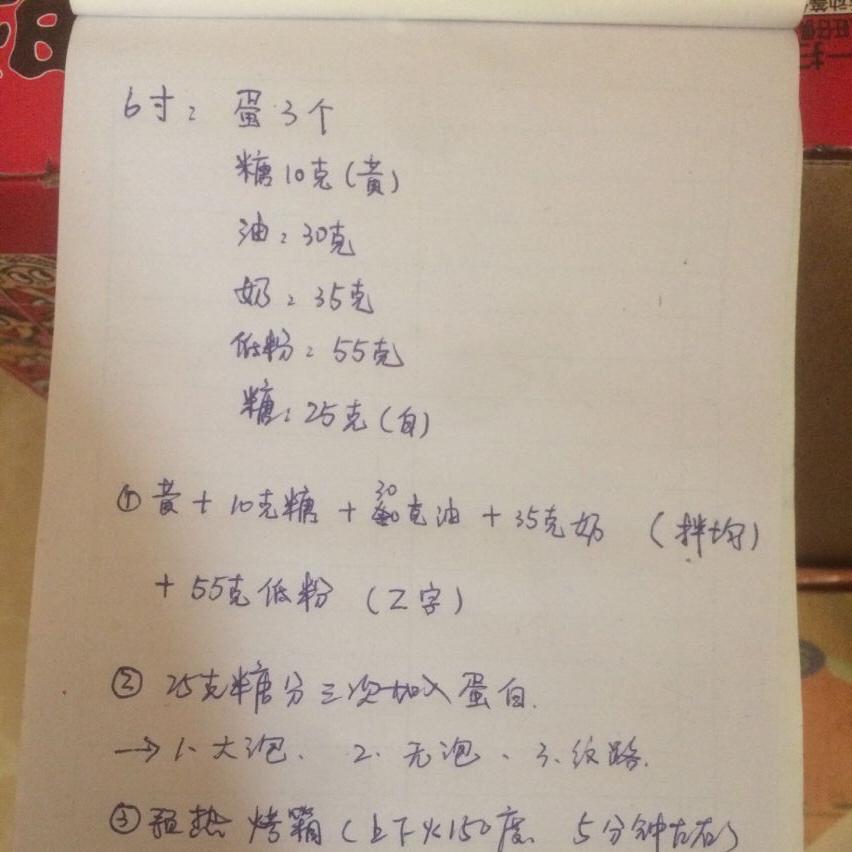 6寸: 蛋3个
糖10克(黄)
油:30克
奶:35克
低粉:55克
糖:25克(白)
① 黄+10克糖+30克油+35克奶 (拌均)
+55克低粉 (Z字)
② 25克糖分三次加入蛋白.
→ 1.大泡、 2.无泡、 3.纹路.
③ 预热烤箱(上下火150度、5分钟左右)